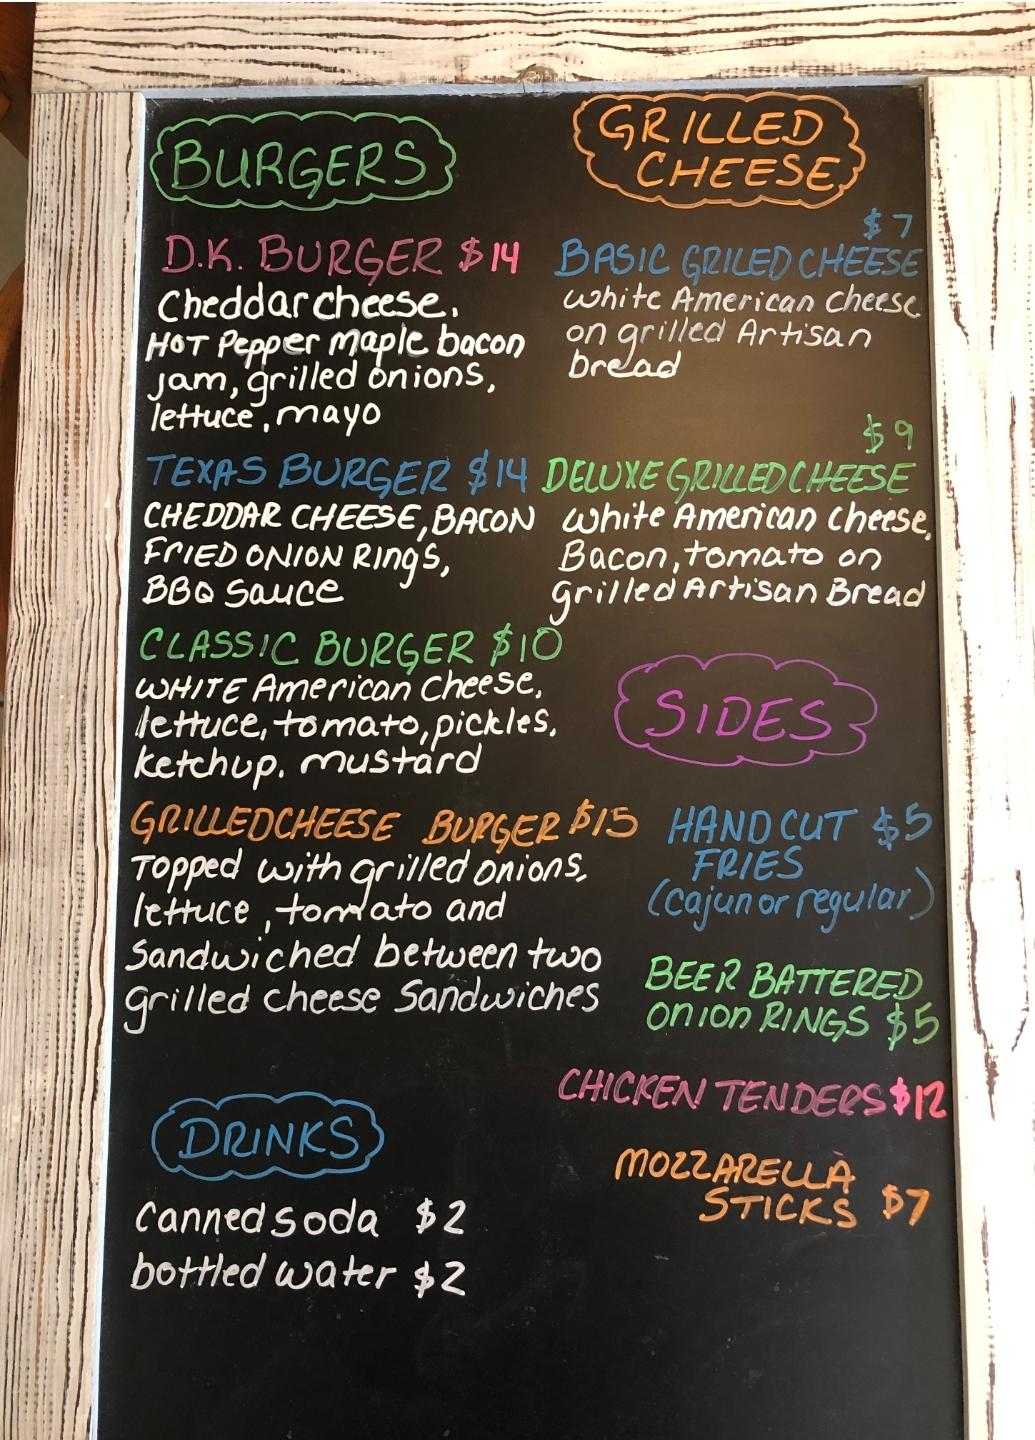 BURGERS
D.K. BURGER $14
Cheddar cheese,
HOT Pepper maple bacon
jam, grilled onions,
lettuce, mayo
TEXAS BURGER $14
CHEDDAR CHEESE, BACON
FRIED ONION RINGS,
BBQ Sauce
CLASSIC BURGER $10
WHITE American Cheese,
lettuce, tomato, pickles,
ketchup. mustard
GRILLEDCHEESE BURGER $15
Topped with grilled onions,
lettuce, tomato and
Sandwiched between two
grilled cheese Sandwiches
DRINKS
canned soda $2
bottled water $2
GRILLED
CHEESE
$7
BASIC GRILED CHEESE
white American cheese
on grilled Artisan
bread
$9
DELUXE GRILLED CHEESE
white American cheese,
Bacon, tomato on
grilled Artisan Bread
SIDES
HAND CUT $5
FRIES
(cajun or regular)
BEER BATTERED
ONION RINGS $5
CHICKEN TENDERS $12
MOZZARELLA
STICKS $7